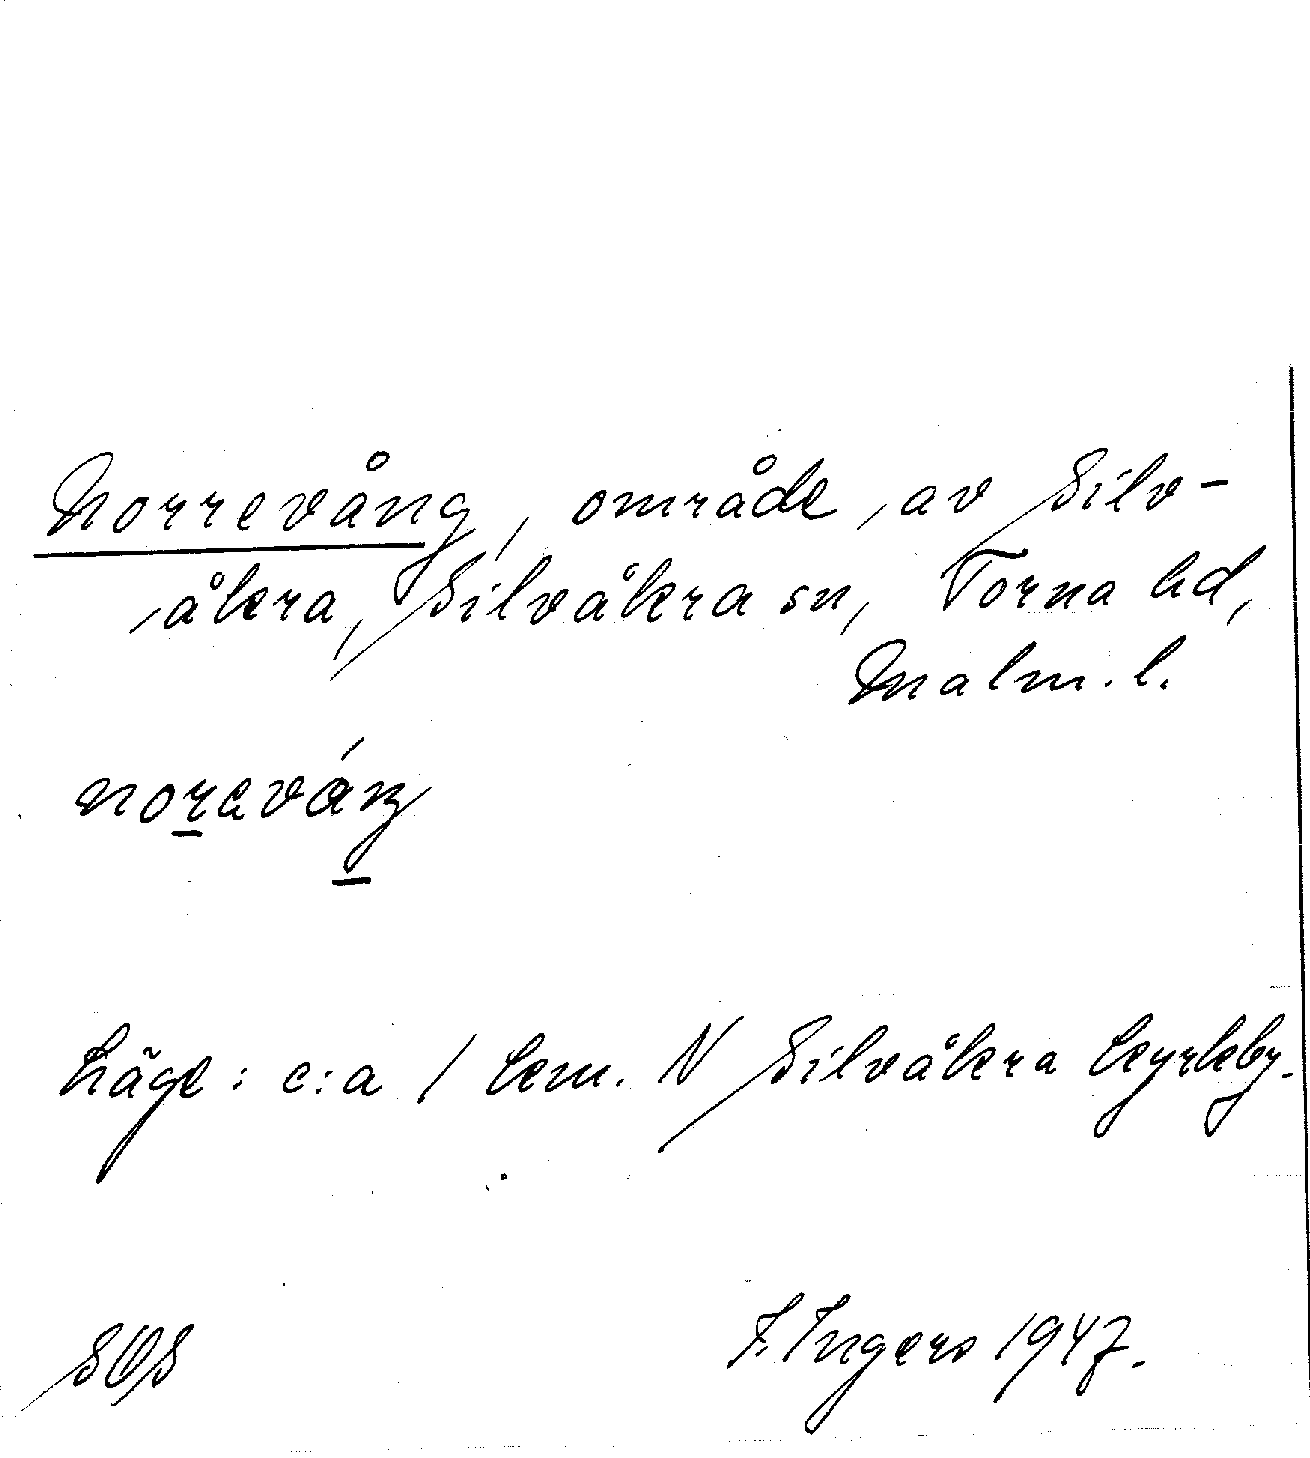 Norrevång, område av Silv-
åkra, Silvåkra sn, Torna hd,
Malm. l.
Läge: c:a 1 km. N Silvåkra kyrkby.
SOS
I. Ingers 1947.